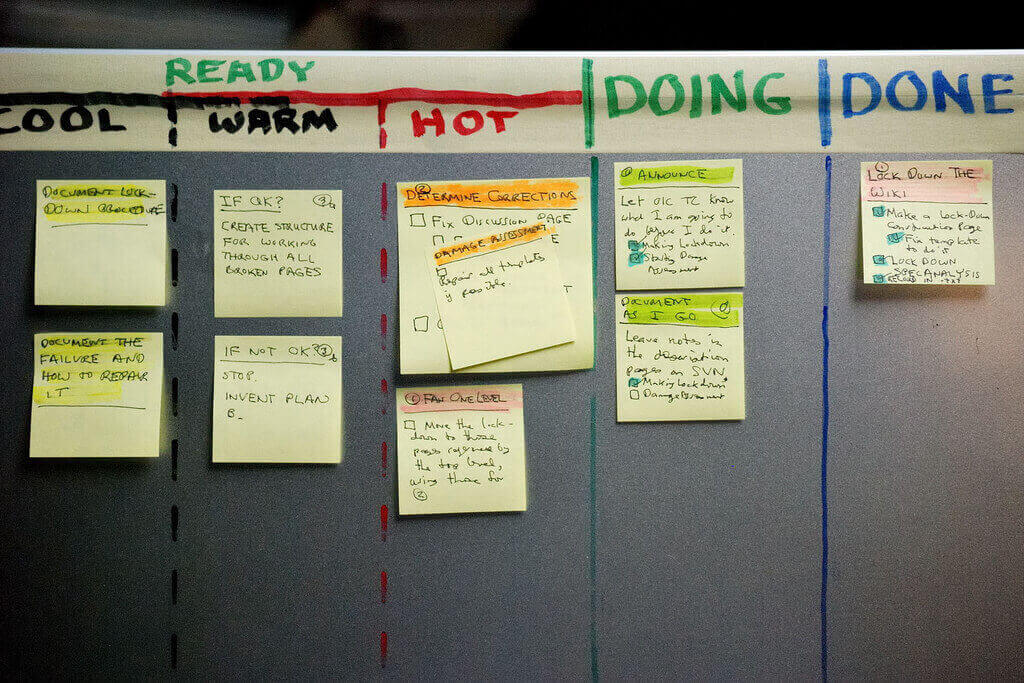 READY
COOL
WARM
HOT
DOING
DONE
DOCUMENT LOCK-
DOWN PROCEDURE
DOCUMENT THE
FAILURE AND
HOW TO REPAIR
IT
IF OK?
CREATE STRUCTURE
FOR WORKING
THROUGH ALL
BROKEN PAGES
IF NOT OK?
STOP.
INVENT PLAN
B.
② DETERMINE CORRECTIONS
FIX DISCUSSION PAGE
DAMAGE ASSESSMENT
Repair all templates
if possible.
① FAN ONE LEVEL
Move the lock-
down to those
pages referenced by
the top level,
using those for
②
ANNOUNCE
Let OIC TZ know
what I am going to
do before I do it.
Making Lockdown
Starting Damage
Assessment
DOCUMENT
AS I GO
Leave notes in
the description
pages on SVN
Making Lockdown
Damage Assessment
① LOCK DOWN THE
WIKI
Make a Lock-Down
Construction Page
Fix template
to do it
LOCK DOWN
SPECANALYSIS